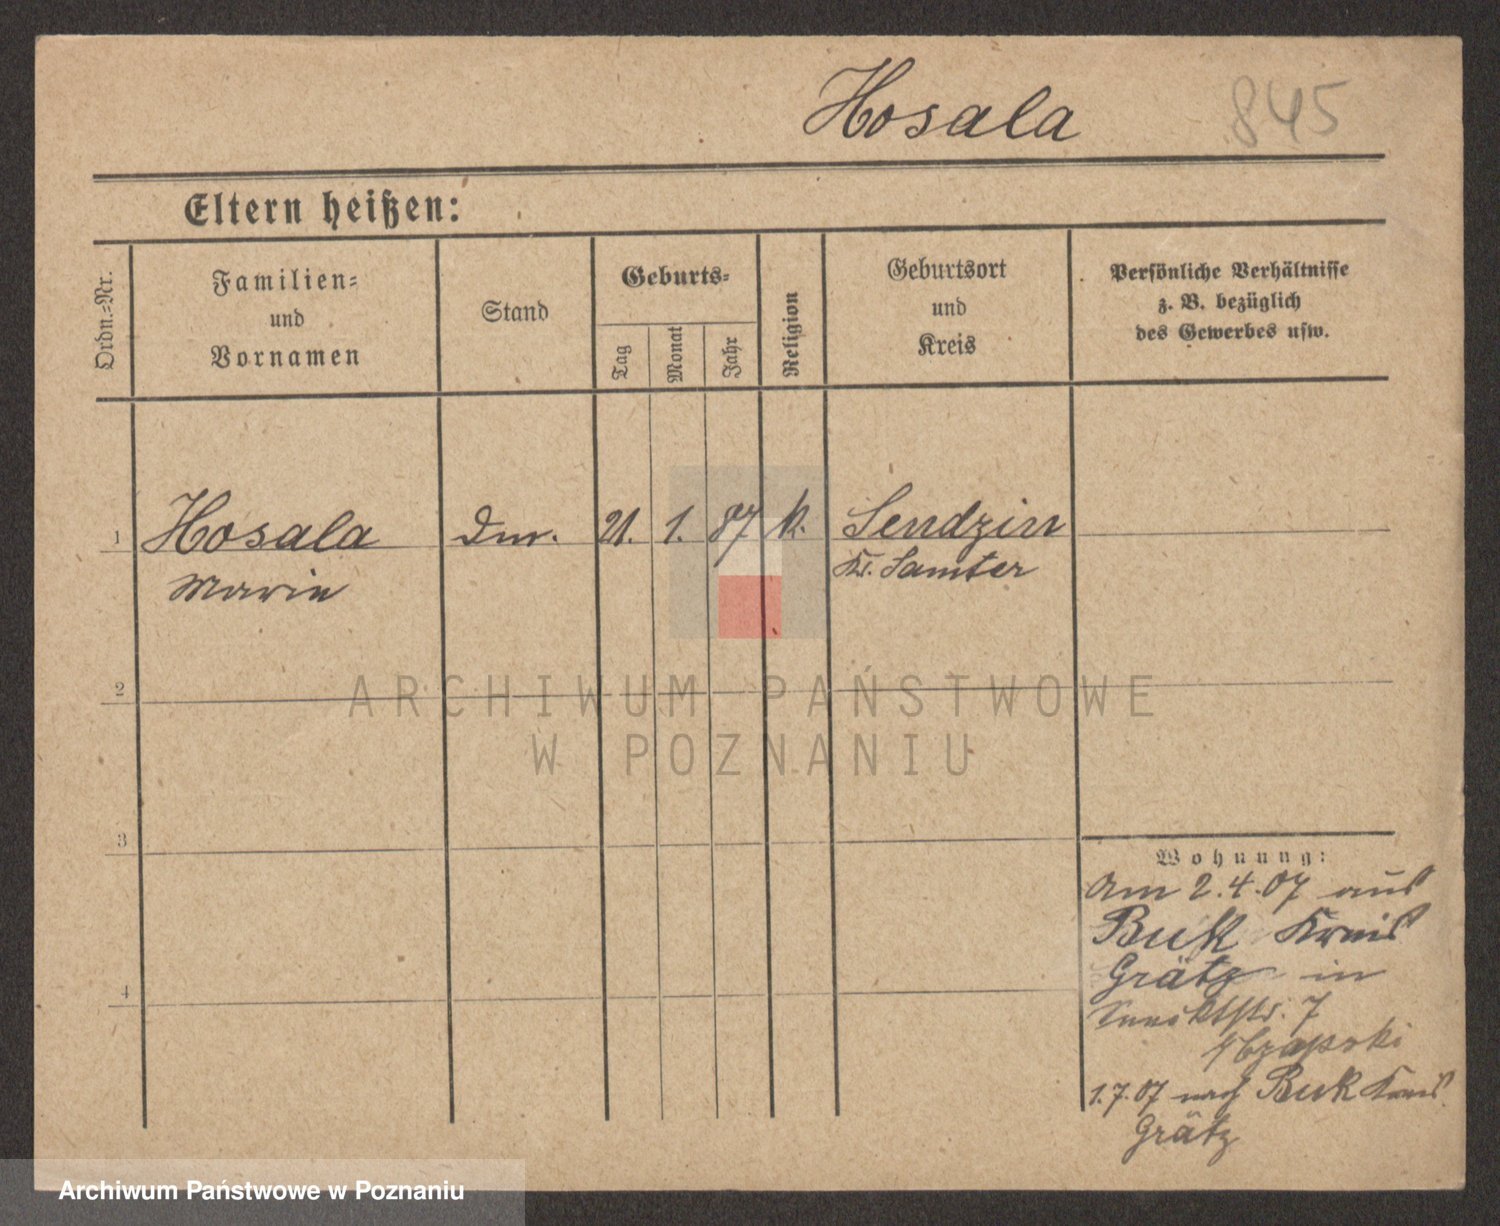 Hosala 845
Eltern heißen:
Ordn.=Nr.
Familien=
und
Vornamen
Stand
Geburts=
Tag
Monat
Jahr
Religion
Geburtsort
und
Kreis
Persönliche Verhältnisse
z. B. bezüglich
des Gewerbes usw.
1 Hosala Dm. 21. 1. 87 k. Sendzin
Marie Kr. Samter
2
3
4
Wohnung:
Am 2.4.07 aus
Buk Kreis
Grätz in
7
Czapski
1.7.07 nach Buk Kreis
Grätz
ARCHIWUM PAŃSTWOWE
W POZNANIU
Archiwum Państwowe w Poznaniu